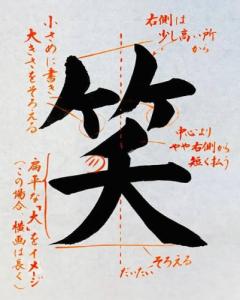 右側は
少し高い所
から
小さめに書き
大きさをそろえる
笑
中心より
やや右側から
短く払う
扁平な「大」をイメージ
(この場合、横画は長く)
そろえる
だいたい